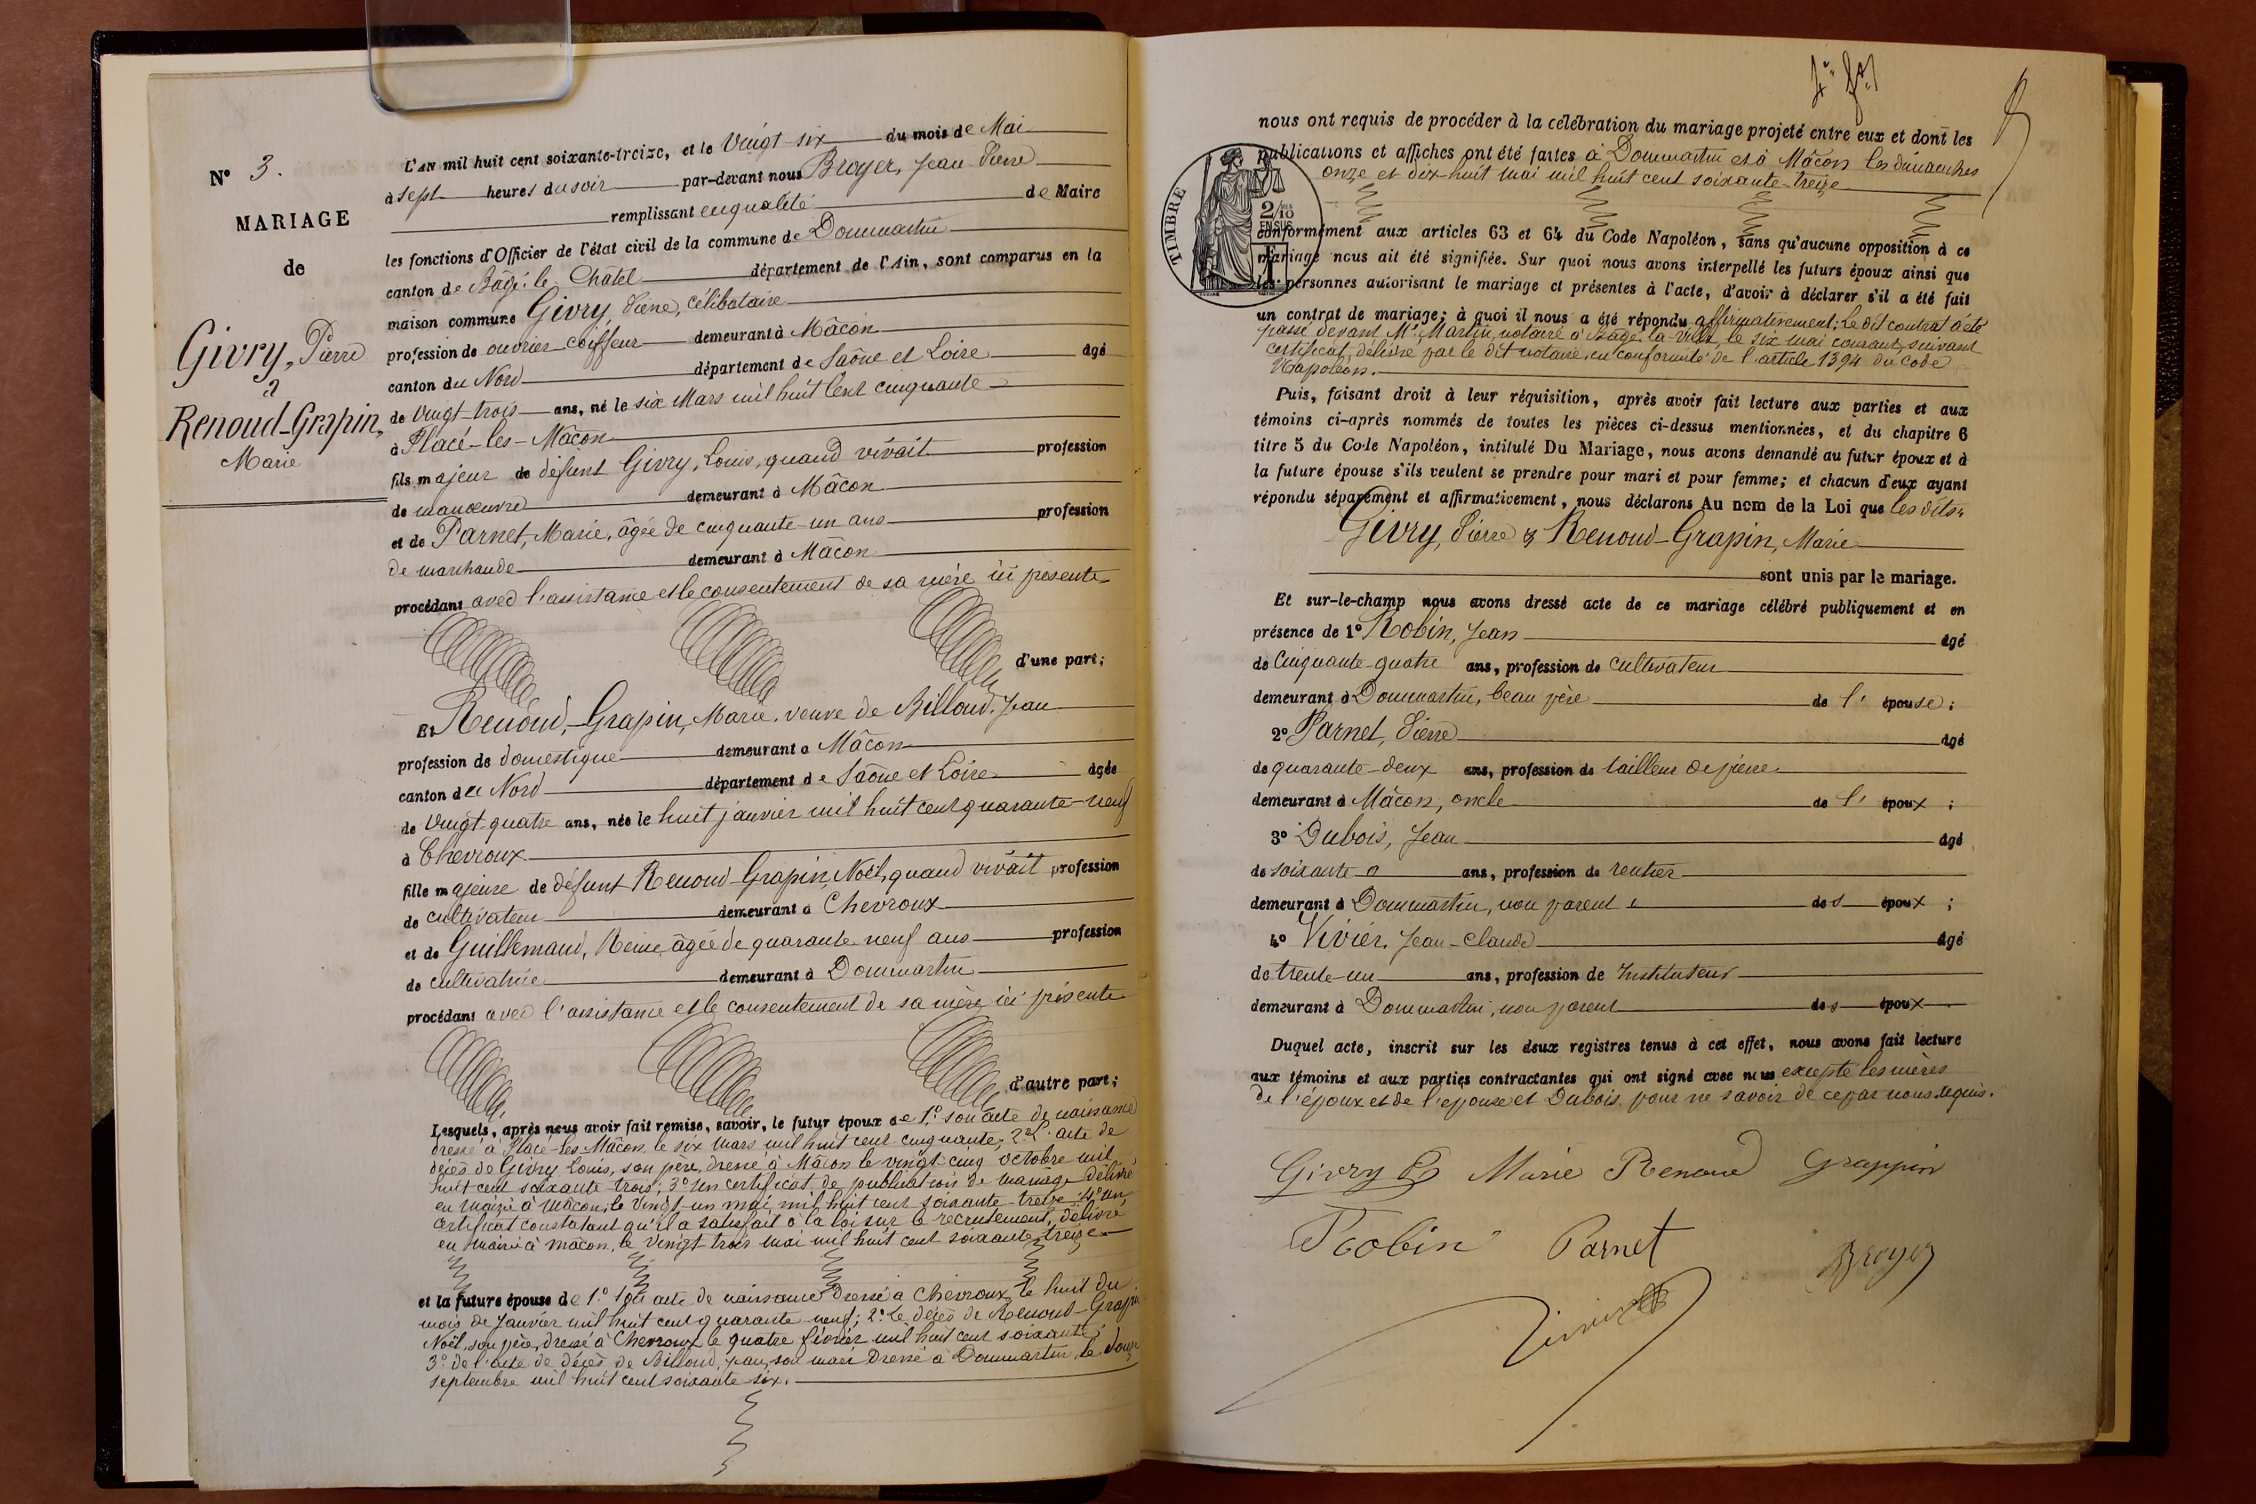 N° 3.
MARIAGE
de
Givry, Pierre
à
Renoud-Grapin,
Marie
L'an mil huit cent soixante-treize, et le Vingt-six du mois de Mai
à sept heures du soir par-devant nous Broyer, Jean Pierre
remplissant en qualité de Maire
les fonctions d'Officier de l'état civil de la commune de Dommartin
canton de Bâgé-le-Châtel département de l'Ain, sont comparus en la
maison commune Givry, Pierre, célibataire
profession de ouvrier coiffeur demeurant à Mâcon
canton du Nord département de Saône et Loire âgé
de vingt-trois ans, né le six Mars mil huit cent cinquante
à Placé-les-Mâcon
fils majeur de défunt Givry, Louis, quand vivait profession
de manœuvre demeurant à Mâcon
et de Parnet, Marie, âgée de cinquante-un ans profession
de marchande demeurant à Mâcon
procédant avec l'assistance et le consentement de sa mère ici présente
d'une part;
Et Renoud-Grapin, Marie, veuve de Billoud, Jean
profession de domestique demeurant à Mâcon
canton du Nord département de Saône et Loire âgée
de vingt-quatre ans, née le huit janvier mil huit cent quarante-neuf
à Chevroux
fille majeure de défunt Renoud-Grapin, Noël, quand vivait profession
de cultivateur demeurant à Chevroux
et de Guillemaud, Reine, âgée de quarante-neuf ans profession
de cultivatrice demeurant à Dommartin
procédant avec l'assistance et le consentement de sa mère ici présente
d'autre part;
Lesquels, après nous avoir fait remise, savoir, le futur époux de 1° son acte de naissance
dressé à Placé-les-Mâcon le six mars mil huit cent cinquante; 2° L'acte de
décès de Givry Louis, son père, dressé à Mâcon le vingt-cinq octobre mil
huit cent soixante-trois; 3° un certificat de publication de mariage délivré
en mairie à Mâcon, le vingt-un mai mil huit cent soixante-treize; 4° un
certificat constatant qu'il a satisfait à la loi sur le recrutement, délivré
en mairie à Mâcon, le vingt-trois mai mil huit cent soixante-treize
et la future épouse de 1° son acte de naissance dressé à Chevroux, le huit du
mois de janvier mil huit cent quarante-neuf; 2° Le décès de Renoud-Grapin
Noël, son père, dressé à Chevroux le quatre février mil huit cent soixante;
3° de l'acte de décès de Billoud, Jean, son mari dressé à Dommartin, le douze
septembre mil huit cent soixante-six.
nous ont requis de procéder à la célébration du mariage projeté entre eux et dont les
publications et affiches ont été faites à Dommartin et à Mâcon les dimanches
onze et dix-huit mai mil huit cent soixante-treize
TIMBRE
2/10
EN SUS
conformément aux articles 63 et 64 du Code Napoléon, sans qu'aucune opposition à ce
mariage nous ait été signifiée. Sur quoi nous avons interpellé les futurs époux ainsi que
les personnes autorisant le mariage et présentes à l'acte, d'avoir à déclarer s'il a été fait
un contrat de mariage; à quoi il nous a été répondu affirmativement; Le dit contrat a été
passé devant Me Martin, notaire à Bâgé-la-Ville, le six mai courant, suivant
certificat délivré par le dit notaire, en conformité de l'article 1394 du Code
Napoléon.
Puis, faisant droit à leur réquisition, après avoir fait lecture aux parties et aux
témoins ci-après nommés de toutes les pièces ci-dessus mentionnées, et du chapitre 6
titre 5 du Code Napoléon, intitulé Du Mariage, nous avons demandé au futur époux et à
la future épouse s'ils veulent se prendre pour mari et pour femme; et chacun d'eux ayant
répondu séparément et affirmativement, nous déclarons Au nom de la Loi que les dits
Givry, Pierre & Renoud-Grapin, Marie
sont unis par le mariage.
Et sur-le-champ nous avons dressé acte de ce mariage célébré publiquement et en
présence de 1° Robin, Jean âgé
de cinquante-quatre ans, profession de cultivateur
demeurant à Dommartin, beau père de l'épouse;
2° Parnet, Pierre âgé
de quarante-deux ans, profession de tailleur de pierre
demeurant à Mâcon, oncle de l'époux;
3° Dubois, Jean âgé
de soixante ans, profession de rentier
demeurant à Dommartin, non parent des époux;
4° Vivier, Jean-Claude âgé
de trente-un ans, profession de Instituteur
demeurant à Dommartin, non parent des époux
Duquel acte, inscrit sur les deux registres tenus à cet effet, nous avons fait lecture
aux témoins et aux parties contractantes qui ont signé avec nous excepté les mères
de l'époux et de l'épouse et Dubois pour ne savoir de ce par nous requis.
Givry P Marie Renoud Grappin
Robin Parnet Broyer
Vivier